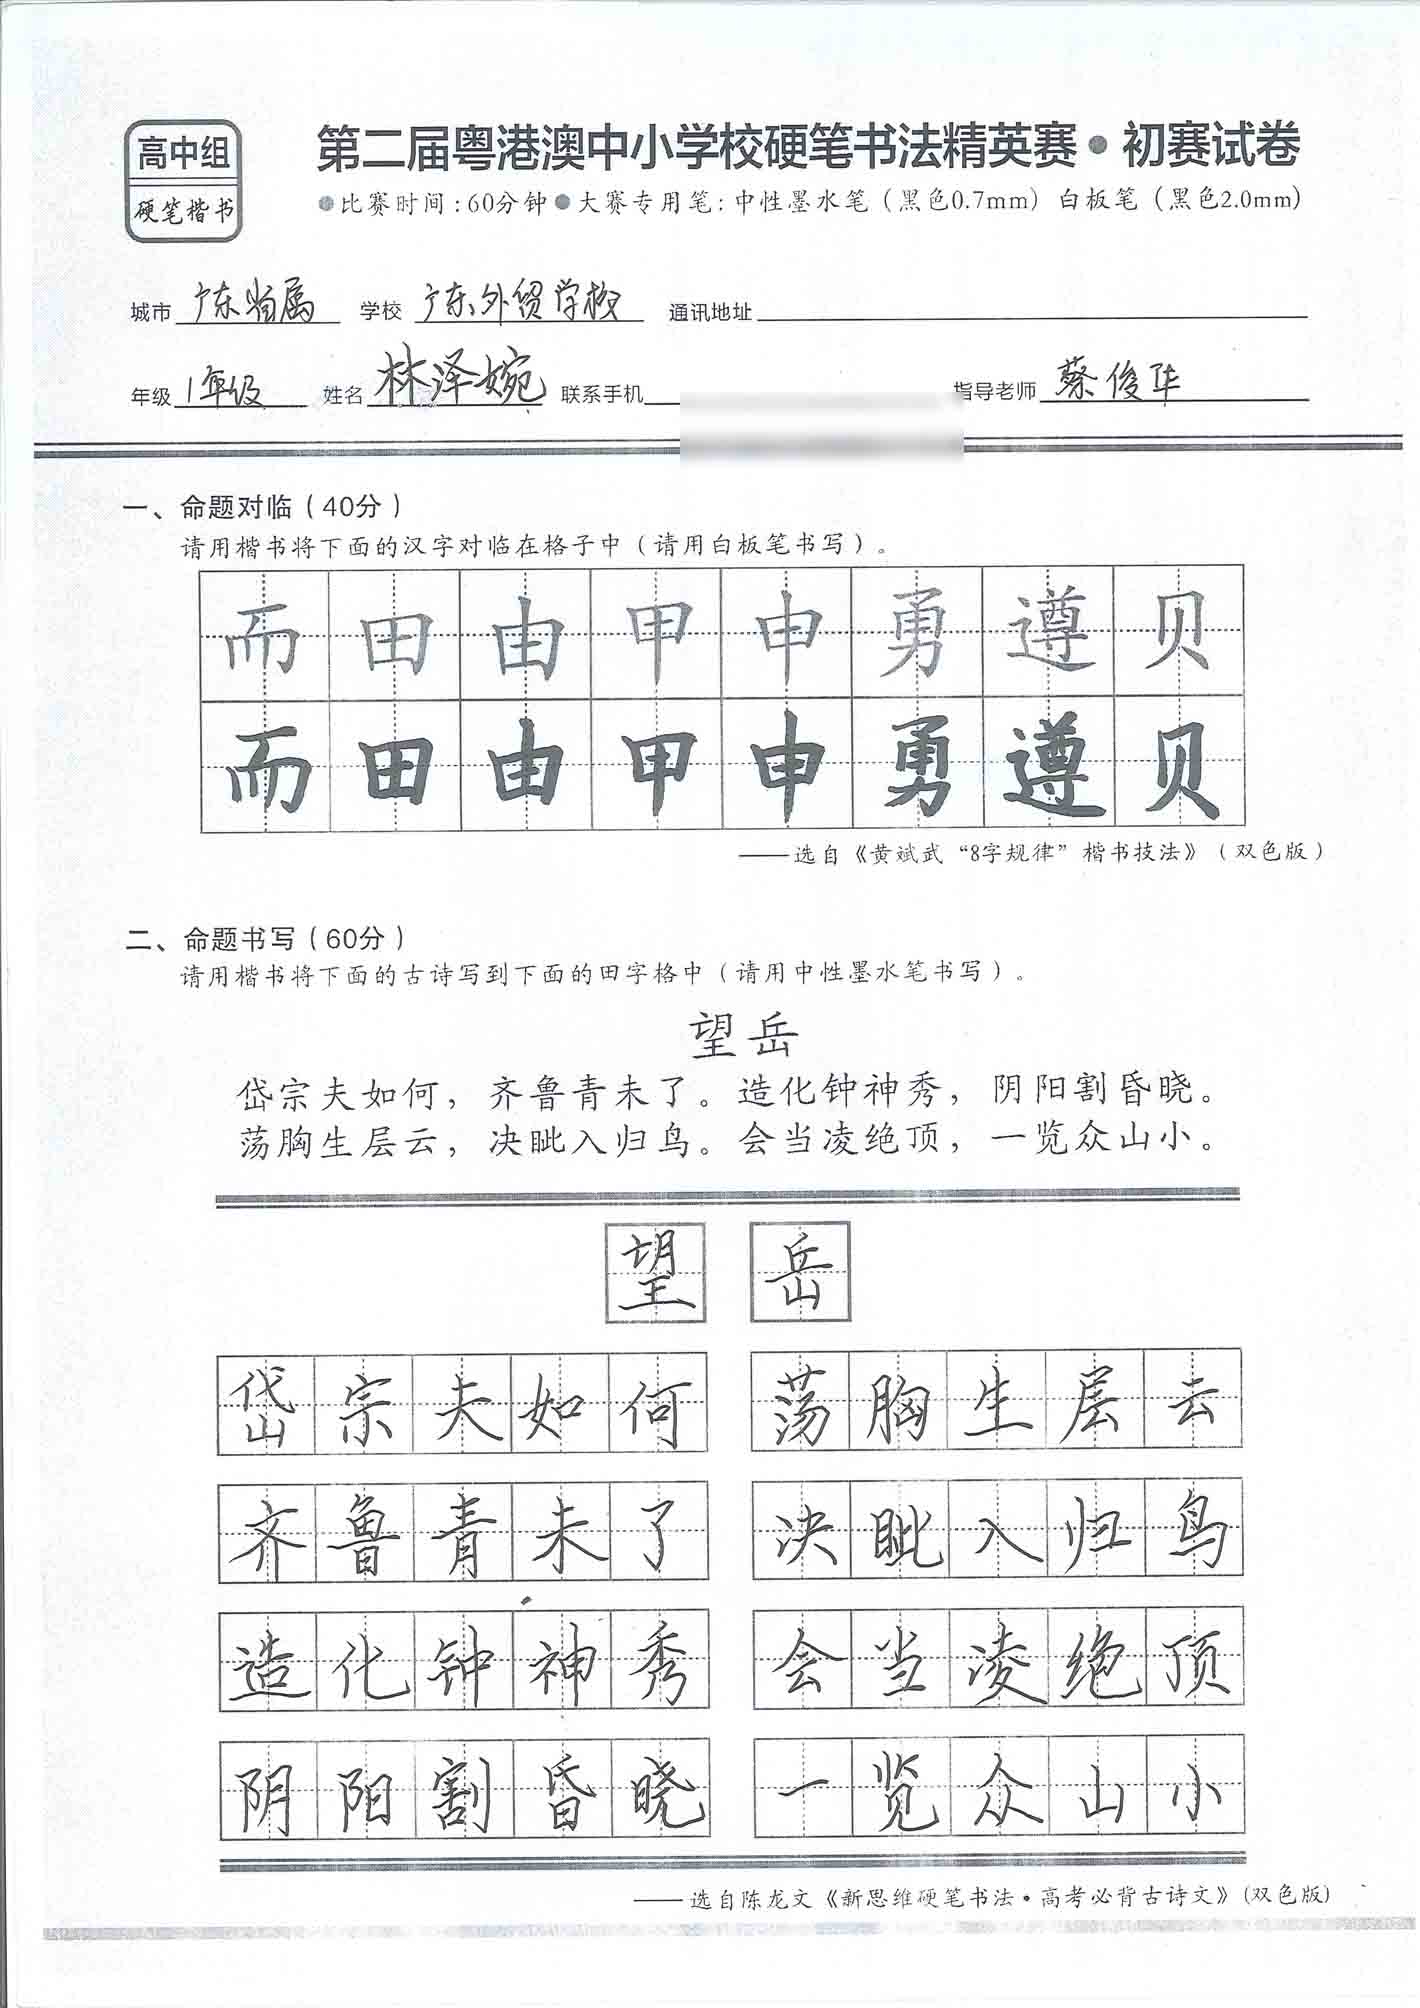 高中组
硬笔楷书
第二届粤港澳中小学校硬笔书法精英赛•初赛试卷
●比赛时间:60分钟●大赛专用笔:中性墨水笔(黑色0.7mm)白板笔(黑色2.0mm)
城市 广东省属 学校 广东外贸学校 通讯地址
年级 1年级 姓名 林泽婉 联系手机 指导老师 蔡俊华
一、命题对临(40分)
请用楷书将下面的汉字对临在格子中(请用白板笔书写)。
而田由甲申勇遵贝
而田由甲申勇遵贝
——选自《黄斌武“8字规律”楷书技法》(双色版)
二、命题书写(60分)
请用楷书将下面的古诗写到下面的田字格中(请用中性墨水笔书写)。
望岳
岱宗夫如何,齐鲁青未了。造化钟神秀,阴阳割昏晓。
荡胸生层云,决眦入归鸟。会当凌绝顶,一览众山小。
望岳
岱宗夫如何 荡胸生层云
齐鲁青未了 决眦入归鸟
造化钟神秀 会当凌绝顶
阴阳割昏晓 一览众山小
——选自陈龙文《新思维硬笔书法•高考必背古诗文》(双色版)